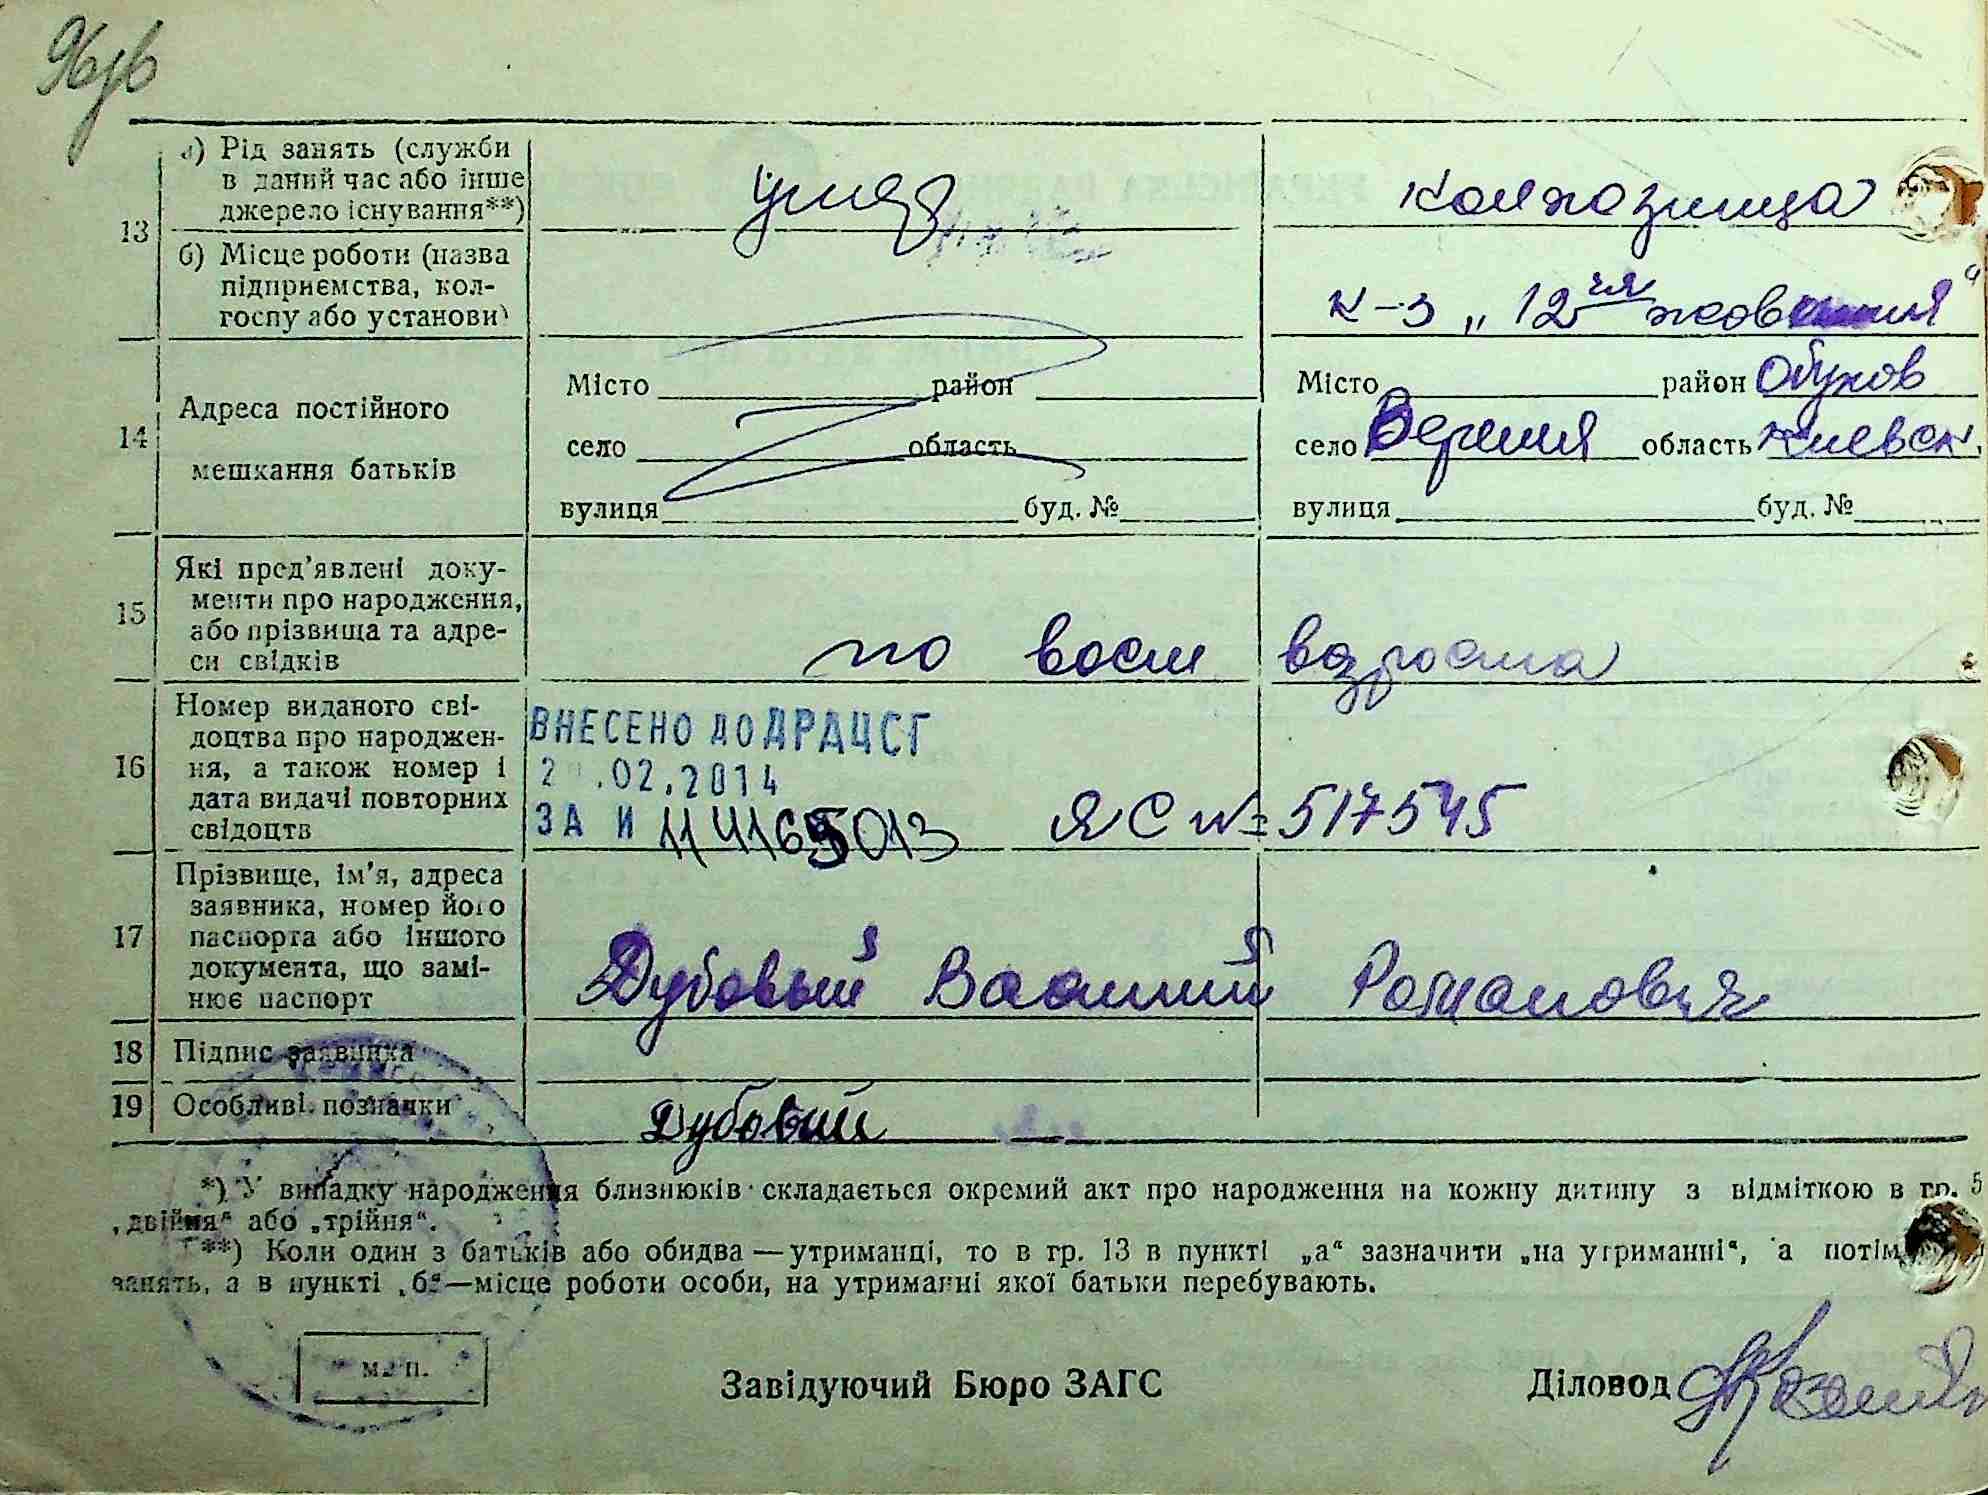 а) Рід занять (служби
в даний час або інше
джерело існування**)
колхозница
13
б) Місце роботи (назва
підприємства, кол-
госпу або установи)
к-з „12 чя жовтня“
14
Адреса постійного
мешкання батьків
Місто район
село область
вулиця буд. №
Місто район Обухов
село Веремя область Киевск.
вулиця буд. №
15
Які пред'явлені доку-
менти про народження,
або прізвища та адре-
си свідків
по восм возроста
16
Номер виданого сві-
доцтва про народжен-
ня, а також номер і
дата видачі повторних
свідоцтв
ВНЕСЕНО ДО ДРАЦСГ
2 .02.2014
ЗА И 114165013
ЯС № 517545
17
Прізвище, ім'я, адреса
заявника, номер його
паспорта або іншого
документа, що замі-
нює паспорт
Дубовый Василий Романович
18 Підпис заявника
19 Особливі позначки
Дубовый
*) У випадку народження близнюків складається окремий акт про народження на кожну дитину з відміткою в гр. 5
„двійня“ або „трійня“.
**) Коли один з батьків або обидва — утриманці, то в гр. 13 в пункті „а“ зазначити „на утриманні“, а потім
занять, а в пункті „б“ — місце роботи особи, на утриманні якої батьки перебувають.
М. П.
Завідуючий Бюро ЗАГС
Діловод